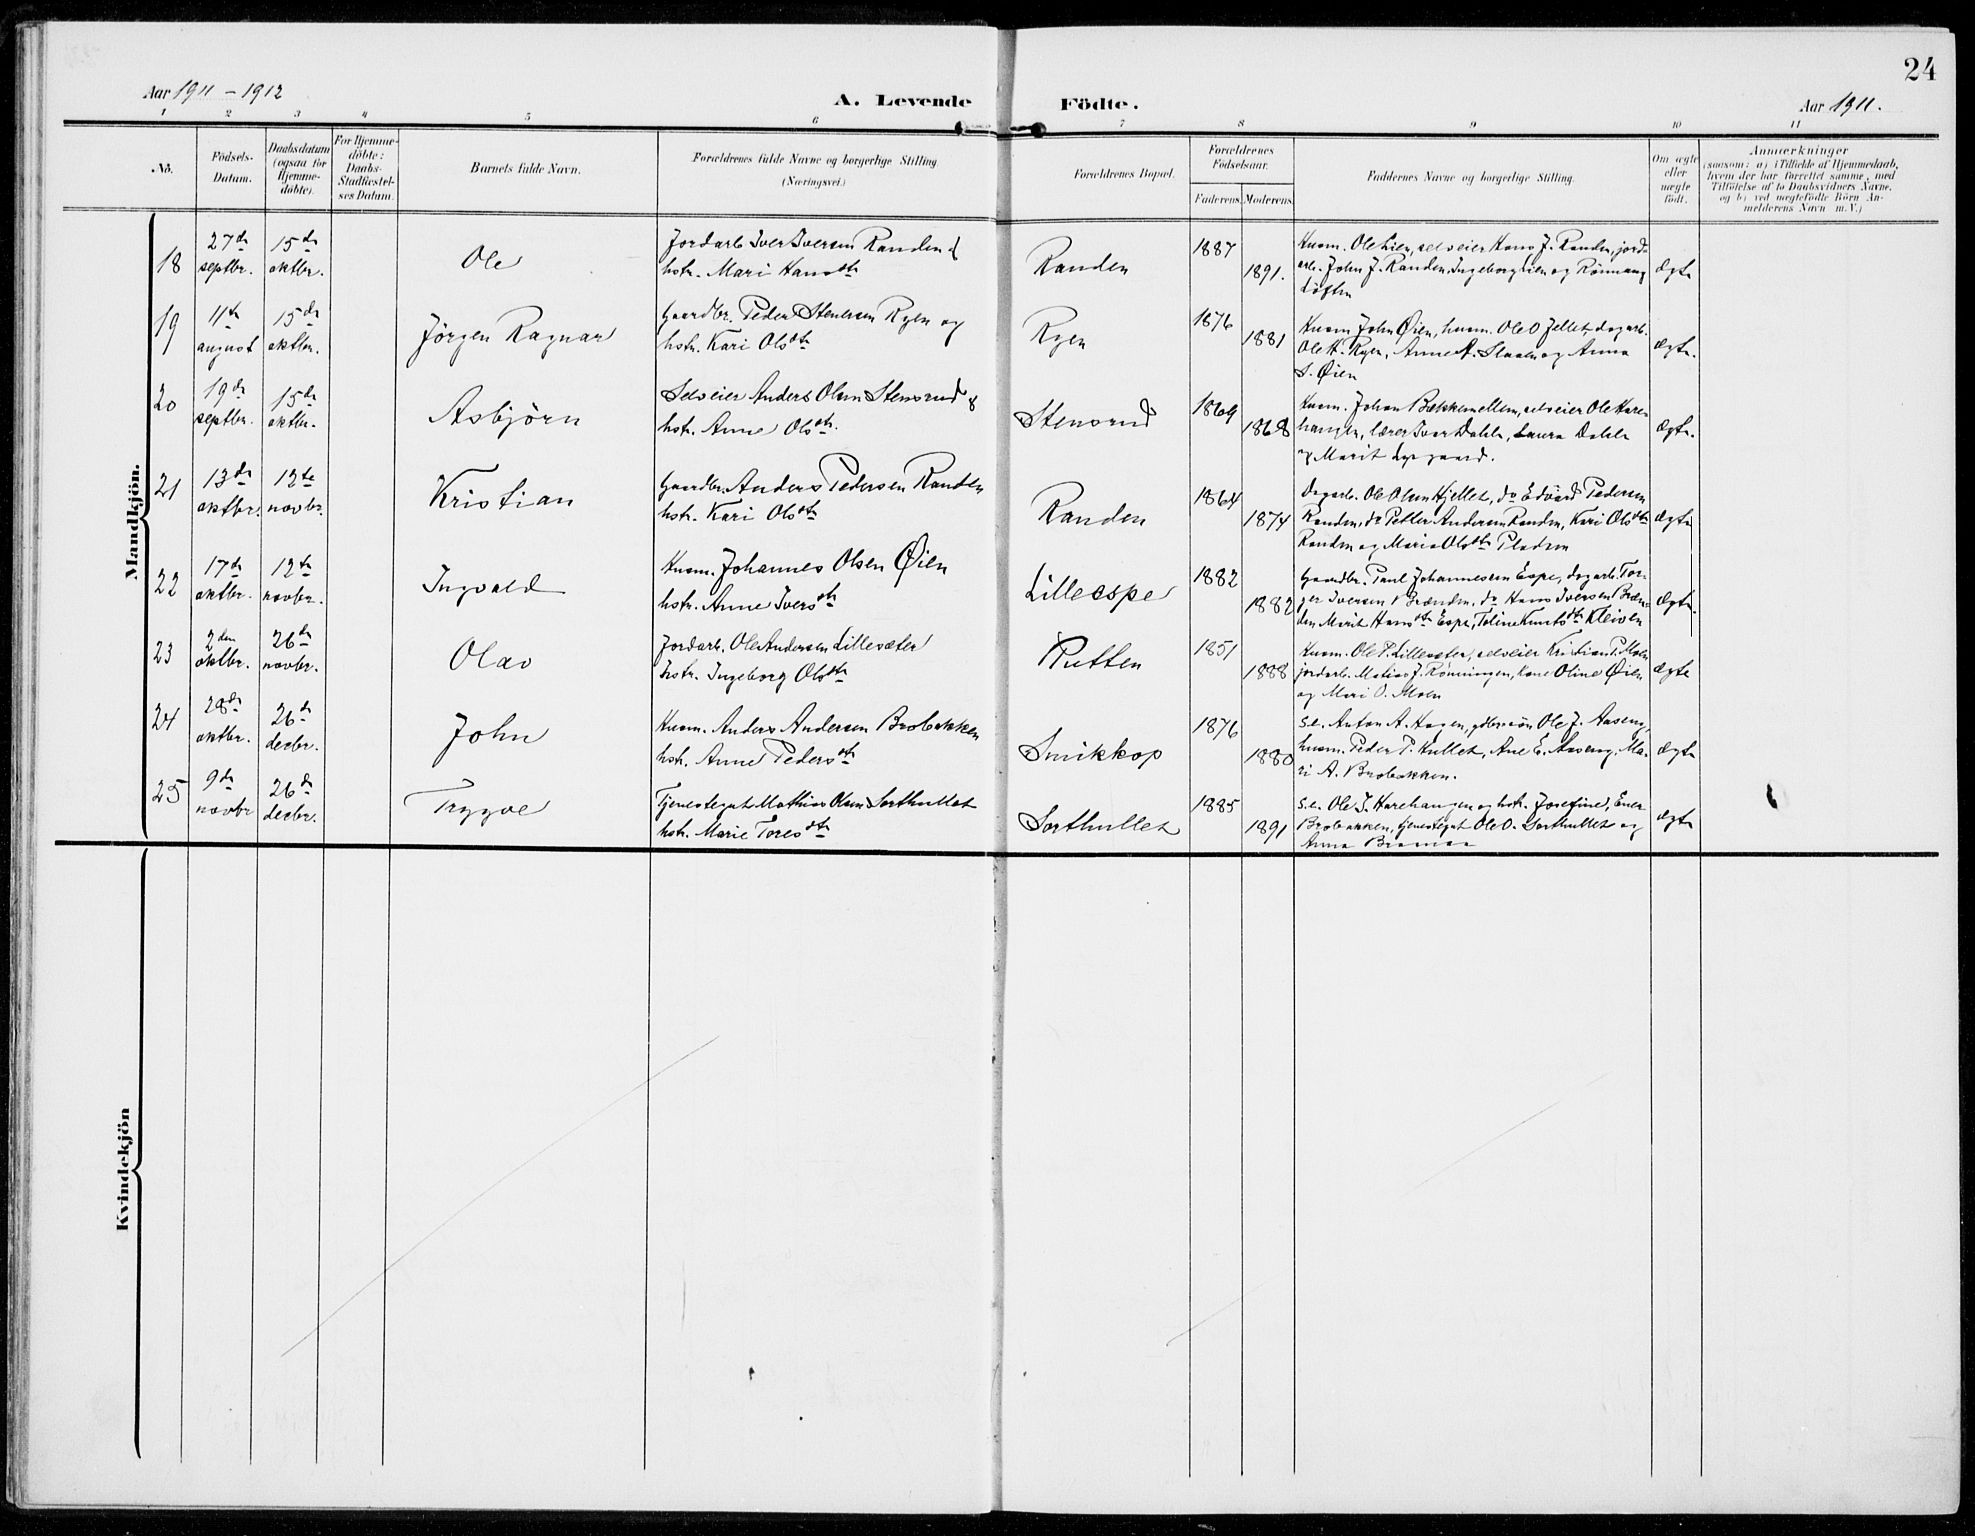 24
Aar 1911 – 1912
A. Levende Födte.
Aar 1911.
1 2 3 4 5 6 7 8 9 10 11
No.
Födsels-
Datum.
Daabsdatum
(ogsaa for
Hjemme-
döbte).
For Hjemme-
döbte:
Daabs-
Stadfæstel-
ses Datum.
Barnets fulde Navn.
Forældrenes fulde Navne og borgerlige Stilling
(Næringsvei.)
Forældrenes Bopæl.
Forældrenes
Födselsaar.
Faderens. Moderens.
Faddernes Navne og borgerlige Stilling.
Om ægte
eller
uægte
födt.
Anmærkninger
(saasom: a) i Tilfælde af Hjemmedaab,
hvem der har forrettet samme, med
Tilföielse af to Daabsvidners Navne,
og b) ved uægtefödte Börn An-
melderens Navn m. V.)
Mandkjön.
18
27de
septbr.
15de
oktbr.
Ole
Jordarb. Iver Iversen Randen &
hstr. Mari Hansdtr
Randen
1887
1891.
Husm. Ole Lien, selveier Hans J. Randen, jord-
arb. John J. Randen, Ingeborg Lien og Rönnaug
Löften
ægte
19
11te
august
15de
oktbr.
Jörgen Ragnar
Gaardbr. Peder Stenersen Ryen og
hstr. Kari Olsdtr
Ryen
1876
1881
Husm. John Øien, husm. Ole O. Jellet, dagarb.
Ole H. Ryen, Anne A. Slaaen og Anna
S. Øien
ægte.
20
19de
septbr.
15de
oktbr.
Asbjörn
Selveier Anders Olsen Stensrud &
hstr. Anne Olsdtr.
Stensrud
1869
1868
Husm. Johan Bækkemellem, selveier Ole Hare-
haugen, lærer Iver Dahle, Laura Dahle
og Marit
ægte.
21
13de
oktbr.
12te
novbr.
Kristian
Gaardbr. Anders Pedersen Randen
hstr. Kari Olsdtr
Randen
1864
1874
Dagarb. Ole Olsen Hjellet, do Edvard Pedersen
Randen, do Petter Andersen Randen, Kari Olsdtr
Randen og Maria Olsdtr Pladsen
ægte
22
17de
oktbr.
12te
novbr.
Ingvald
Husm. Johannes Olsen Øien
hstr. Anne Iversdtr
Lilleespe
1882
1882
Gaardbr. Paul Johannesen Espe, dagarb. Tor-
ger Iversen Brænden, do Hans Iversen Bræn-
den Marit Hansdtr Espe, Toline Knutsdtr Kleiven
ægte.
23
2den
oktbr.
26de
novbr.
Olav
Jordarb. Ole Andersen Lillesæter
hstr. Ingeborg Olsdtr
Rutten
1851
1888
Husm. Ole P. Lillesæter, selveier Kristian P. Moen
jordarb. Matias J. Rönningen, kone Oline Øien
og Mari O. Moen
ægte
24
28de
oktbr.
26de
decbr.
John
Husm. Anders Andersen Brobakken
hstr. Anne Pedersdtr
Smikkop
1876
1880
s.e. Anton A. Hagen, gdbrsön Ole J. Aaseng,
husm. Peder P. Hullet, Ane E. Aaseng, Ma-
ri A. Brobakken.
ægte
25
9de
novbr
26de
decbr.
Trygve
Tjenestegut Mathias Olsen Sorthullet
hstr. Marie Toresdtr
Sorthullet
1885
1891
s.e. Ole J. Harehaugen og hstr. Josefine, Ener
Brobakken, tjenestegut Ole O. Sorthullet og
Anna
ægte
Kvindekjön